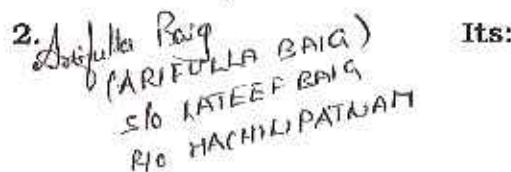 2. Arifulla Baig Its:
(ARIFULLA BAIG)
S/o LATEEF BAIG
R/o MACHILIPATNAM